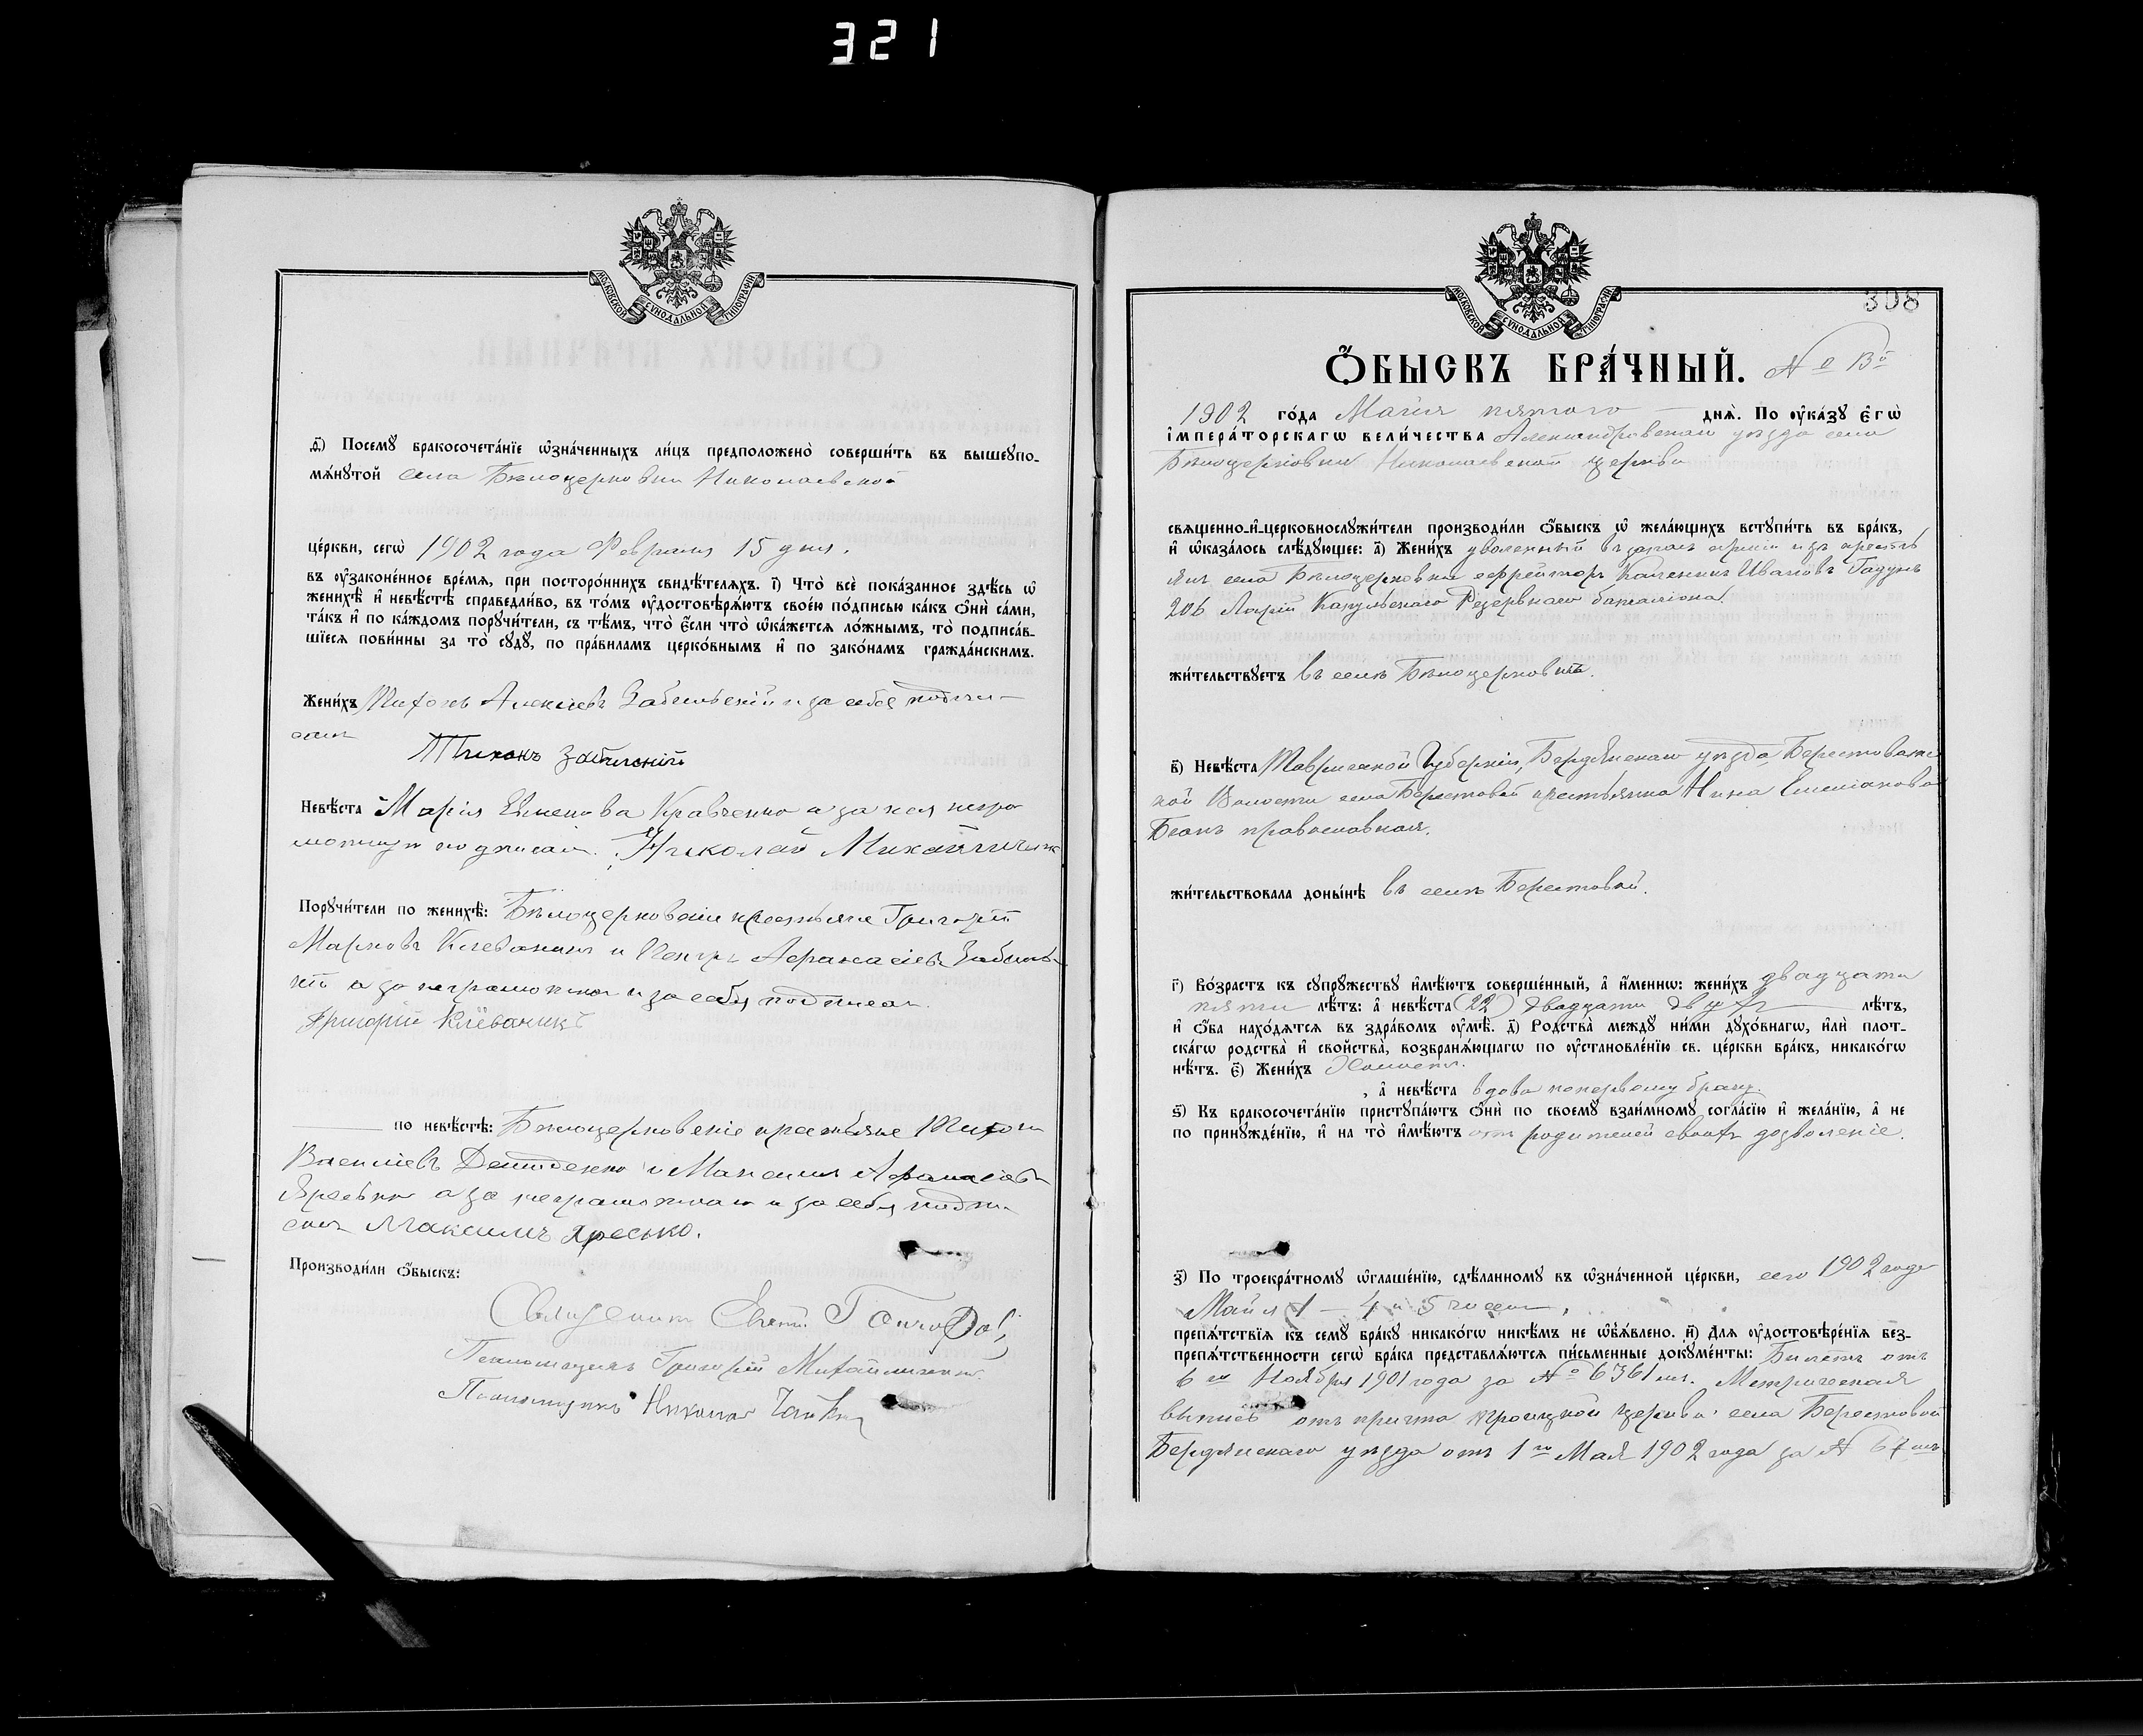 321
МОСКОВСКОЙ СѴНОДАЛЬНОЙ ТИПОГРАФІИ
д҃і) Посемꙋ бракосочета́нїе ѡ҆зна́ченныхъ ли́цъ предположено̀ соверши́ть въ вышеꙋпо-
мѧ́нꙋтой села Бѣлоцерковки Николаевской
це́ркви, сегѡ̀ 1902 года Февраля 15 дня.
въ ᲂу҆зако́ненное вре́мѧ, при посторо́ннихъ свидѣ́телѧхъ. і҃) Что̀ всѐ пока́занное здѣ́сь ѡ҆
женихѣ̀ и҆ невѣ́стѣ справедли́во, въ то́мъ ᲂу҆достовѣрѧ́ютъ свое́ю по́дписью ка́къ ѻ҆нѝ са́ми,
та́къ и҆ по ка́ждомъ порꙋчи́тели, съ тѣ́мъ, что̀ є҆́сли что̀ ѡ҆ка́жетсѧ ло́жнымъ, то̀ подписа́в-
шїесѧ пови́нны за то̀ сꙋдꙋ̀, по пра́виламъ церко́внымъ и҆ по зако́намъ гражда́нскимъ.
Жени́хъ Тихонъ Алексіевъ Забильскій и за себе подпи-
салъ
Тихонъ Забильскій
Невѣ́ста Марія Кравченко а за нея негра
мотную подписалъ. Николай Михайличенк
Порꙋчи́тели по женихѣ̀: Бѣлоцерковскіе крестьяне Григорій
Марковъ Клеваникъ и Петръ Афанасіевъ Забиль-
кій а за неграмотнаго и за себя подписал
Григорій Клёваникъ
по невѣ́стѣ: Бѣлоцерковскіе крестьяне Тихон
Василіевъ Демиденко и Максимъ Афанасіевъ
Яресько а за неграмотнаго и за себя подпи
салъ Максимъ Яресько.
Производи́ли ѻ҆́быскъ:
Священникъ
Псаломщикъ Григорій Михайличенко.
Псаломщикъ Николай
МОСКОВСКОЙ СѴНОДАЛЬНОЙ ТИПОГРАФІИ
308
Ѻ҆́БЫСКЪ БРА́ЧНЫЙ. №
1902 го́да Майя пятого днѧ̀. По ᲂу҆ка́зꙋ є҆гѡ̀
і҆мпера́торскагѡ вели́чества Александровскаго уѣзда села
Бѣлоцерковки Николаевской церкви
свѧще́нно-и҆-церковнослꙋжи́тели производи́ли ѻ҆́быскъ ѡ҆ жела́ющихъ встꙋпи́ть въ бра́къ,
и҆ ѡ҆каза́лось слѣ́дꙋющее: а҃) Жени́хъ уволенный въ запасъ арміи изъ кресть
янъ села Бѣлоцерковки ефрейторъ Каленикъ Ивановъ
206 Кагульскаго Резервнаго баталіона
жи́тельствꙋетъ въ селѣ Бѣлоцерковкѣ.
в҃) Невѣ́ста Таврической Губерніи, Бердянскаго уѣзда Берестовани-
кой Волости села Берестовой крестьянка Нина Емеліановна
православная.
жи́тельствовала доны́нѣ въ селѣ Берестовой.
г҃) Во́зрастъ къ сꙋпрꙋ́жествꙋ и҆мѣ́ютъ соверше́нный, а҆ и҆́меннѡ: жени́хъ двадцати
пяти лѣ́тъ: а҆ невѣ́ста (22) двадцати двухъ лѣ́тъ,
и҆ ѻ҆́ба нахо́дѧтсѧ въ здра́вомъ ᲂу҆мѣ̀. д҃) Родства̀ междꙋ ни́ми дꙋхо́внагѡ, и҆лѝ плот-
ска́гѡ родства̀ и҆ сво́йства, возбранѧ́ющагѡ по ᲂу҆становле́нїю св. це́ркви бра́къ, никако́гѡ
нѣ́тъ. є҃) Жени́хъ Холостъ.
, а҆ невѣ́ста вдова по первому браку.
ѕ҃) Къ бракосочета́нїю пристꙋпа́ютъ ѻ҆нѝ по своемꙋ̀ взаи́мномꙋ согла́сїю и҆ жела́нїю, а҆ не
по принꙋжде́нїю, и҆ на то̀ и҆мѣ́ютъ отъ родителей своихъ дозволеніе.
з҃) По троекра́тномꙋ ѡ҆глаше́нїю, сдѣ́ланномꙋ въ ѡ҆зна́ченной це́ркви, сего 1902 года
Майя 1 — 4 и 5 числа,
препѧ́тствїѧ къ семꙋ̀ бра́кꙋ никако́гѡ никѣ́мъ не ѡ҆б̾ѧ́влено. и҃) Длѧ ᲂу҆достовѣре́нїѧ без-
препѧ́тственности сегѡ̀ бра́ка представлѧ́ютсѧ пи́сьменные докꙋме́нты: Билетъ отъ
6 го Ноября 1901 года за № 6361 мъ. Метрическая
выпись отъ причта Троицкой церкви села Берестовой
Бердянскаго уѣзда отъ 1 го Мая 1902 года за № 67 мъ